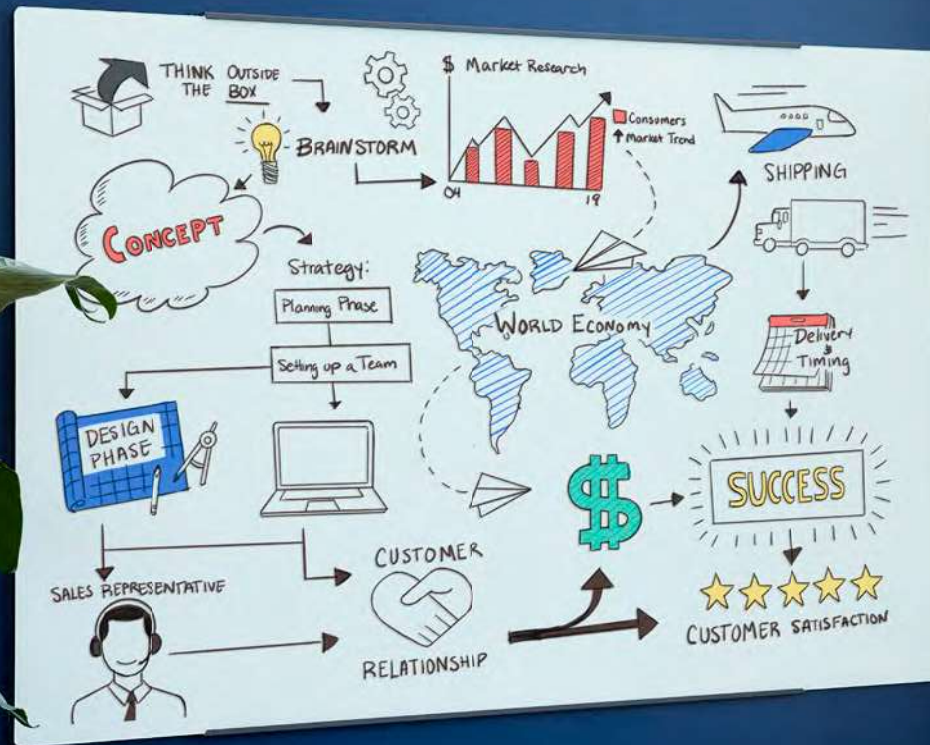 THINK OUTSIDE
THE BOX
BRAINSTORM
$ Market Research
Consumers
Market Trend
04
19
SHIPPING
CONCEPT
Strategy:
Planning Phase
Setting up a Team
WORLD ECONOMY
Delivery
&
Timing
DESIGN
PHASE
$
SUCCESS
SALES REPRESENTATIVE
CUSTOMER
RELATIONSHIP
CUSTOMER SATISFACTION